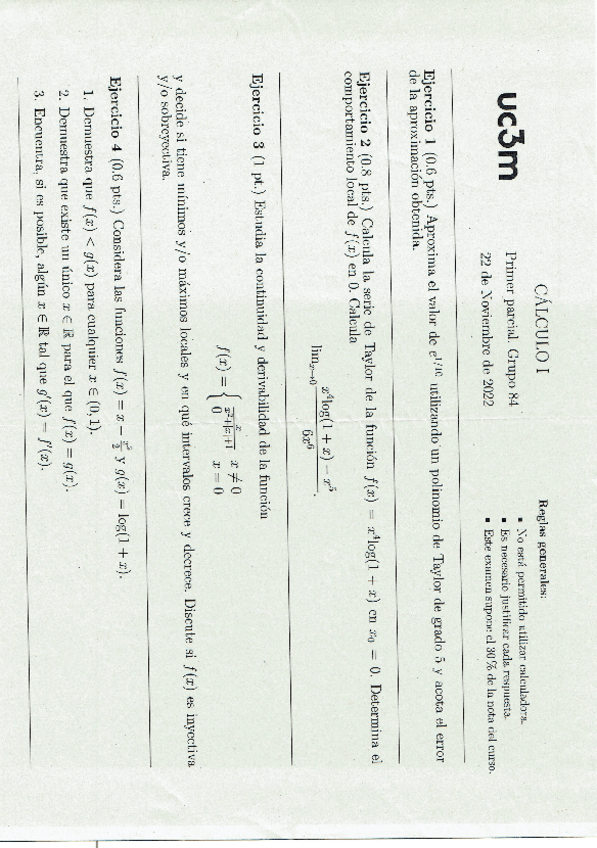 uc3m
CÁLCULO I
Primer parcial. Grupo 84
22 de Noviembre de 2022
Reglas generales:
▪ No está permitido utilizar calculadora.
▪ Es necesario justificar cada respuesta.
▪ Este examen supone el 30 % de la nota del curso.
Ejercicio 1 (0.6 pts.) Aproxima el valor de e^{1/10} utilizando un polinomio de Taylor de grado 5 y acota el error
de la aproximación obtenida.
Ejercicio 2 (0.8 pts.) Calcula la serie de Taylor de la función f(x) = x^4 log(1 + x) en x_0 = 0. Determina el
comportamiento local de f(x) en 0. Calcula
lim_{x→0} \frac{x^4 log(1 + x) − x^5}{6x^6}.
Ejercicio 3 (1 pt.) Estudia la continuidad y derivabilidad de la función
f(x) = { \frac{x}{x^2+|x|+1} x ≠ 0
0 x = 0
y decide si tiene mínimos y/o máximos locales y en qué intervalos crece y decrece. Discute si f(x) es inyectiva
y/o sobreyectiva.
Ejercicio 4 (0.6 pts.) Considera las funciones f(x) = x − \frac{x^2}{2} y g(x) = log(1 + x).
1. Demuestra que f(x) < g(x) para cualquier x ∈ (0, 1).
2. Demuestra que existe un único x ∈ ℝ para el que f(x) = g(x).
3. Encuentra, si es posible, algún x ∈ ℝ tal que g′(x) = f′(x).